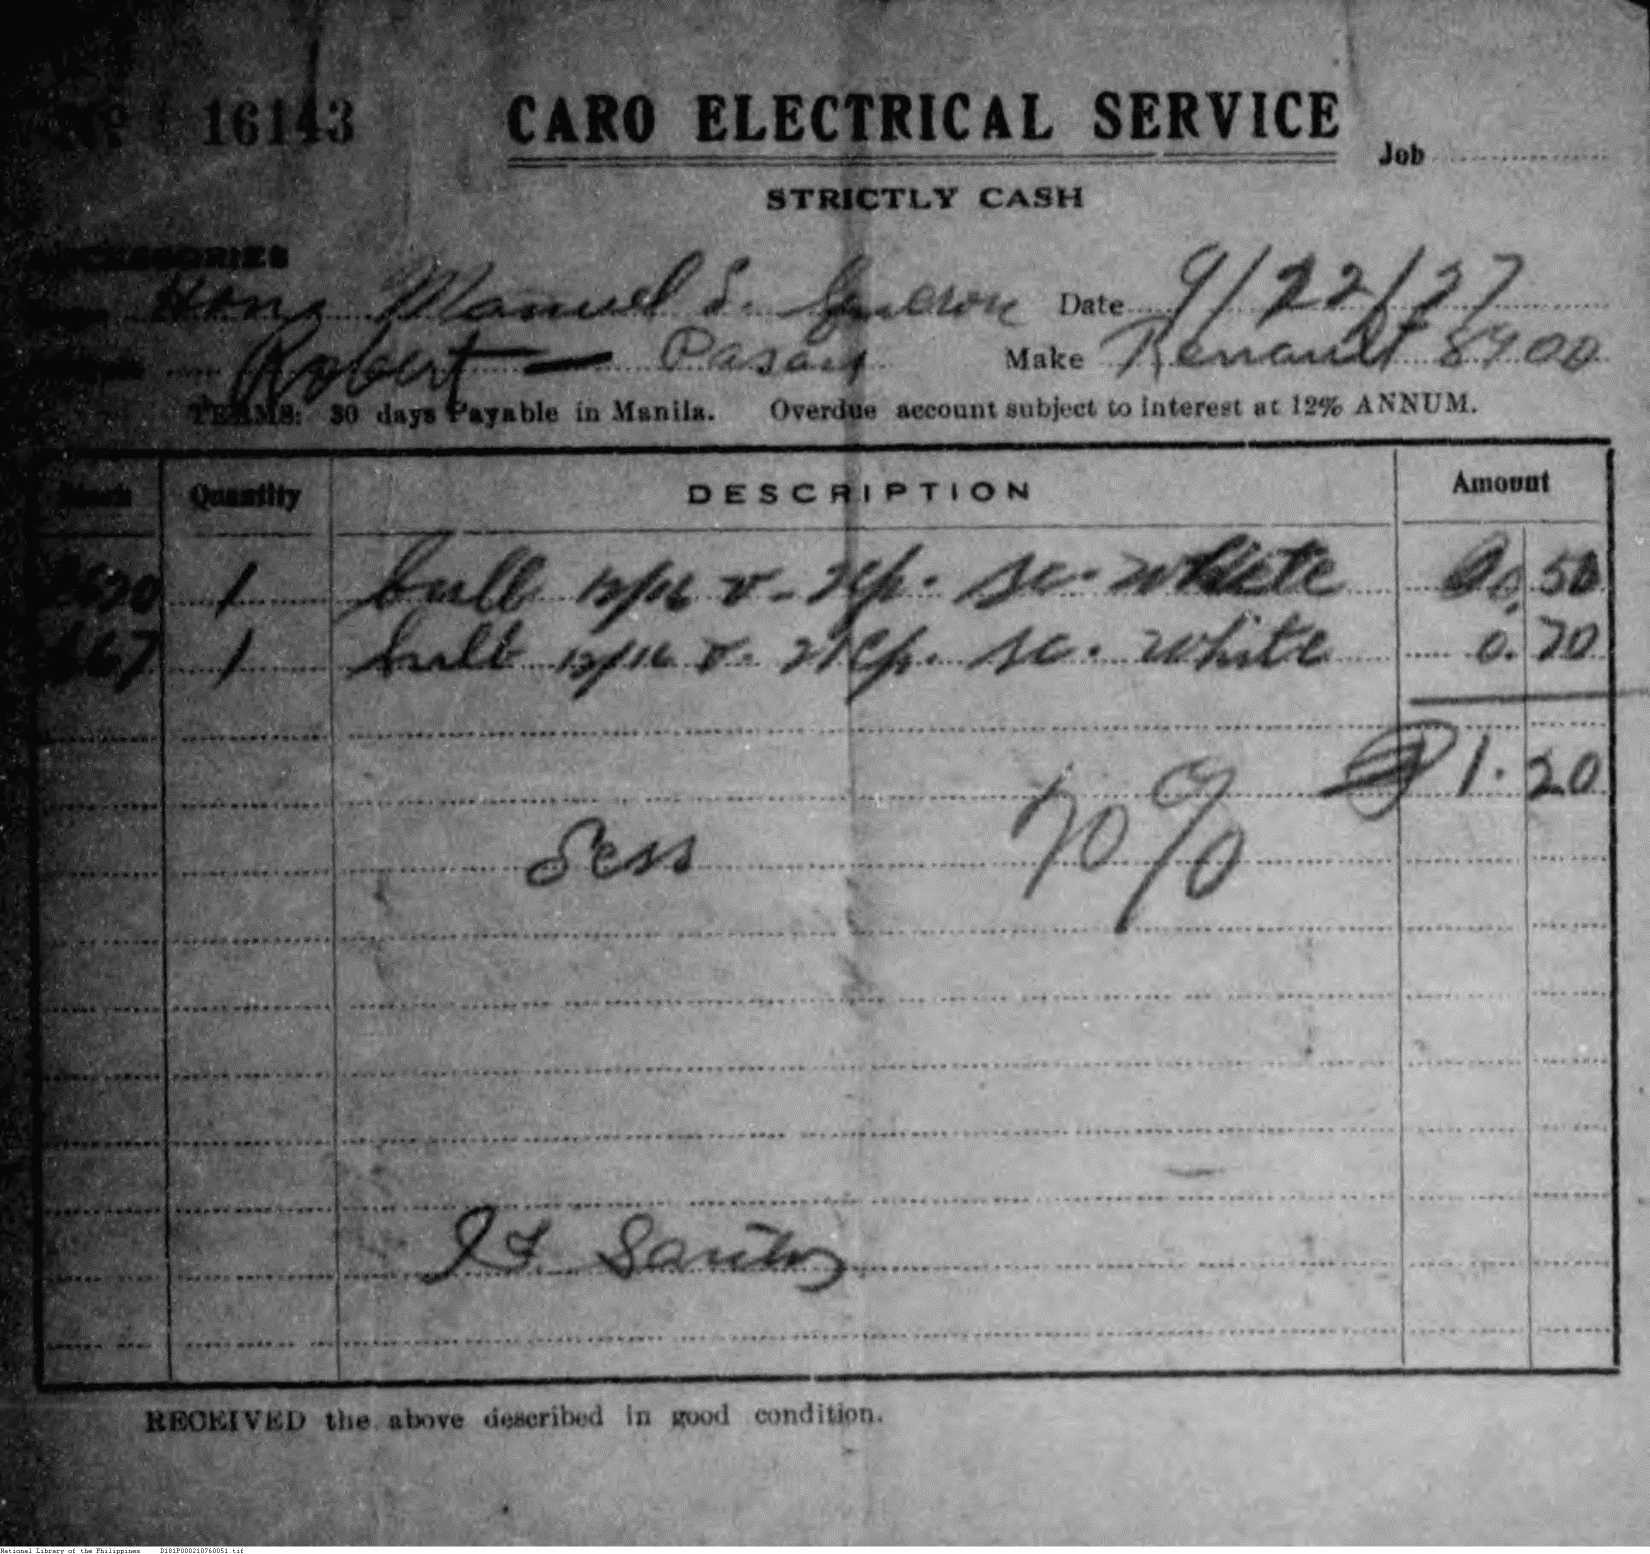 Nº 16143 CARO ELECTRICAL SERVICE Job
STRICTLY CASH
ACCESSORIES
Hons Manuel Date 9/22/27
Robert — Pasay Make Renault 8900
TERMS: 30 days Payable in Manila. Overdue account subject to interest at 12% ANNUM.
Quantity DESCRIPTION Amount
1 bulb 12/16 v - cp. sc. white 0.50
67 1 bulb 12/16 v. 21 cp. sc. white 0.70
₱ 1.20
Less 10%
Santos
RECEIVED the above described in good condition.
National Library of the Philippines D101P000210760051.tif